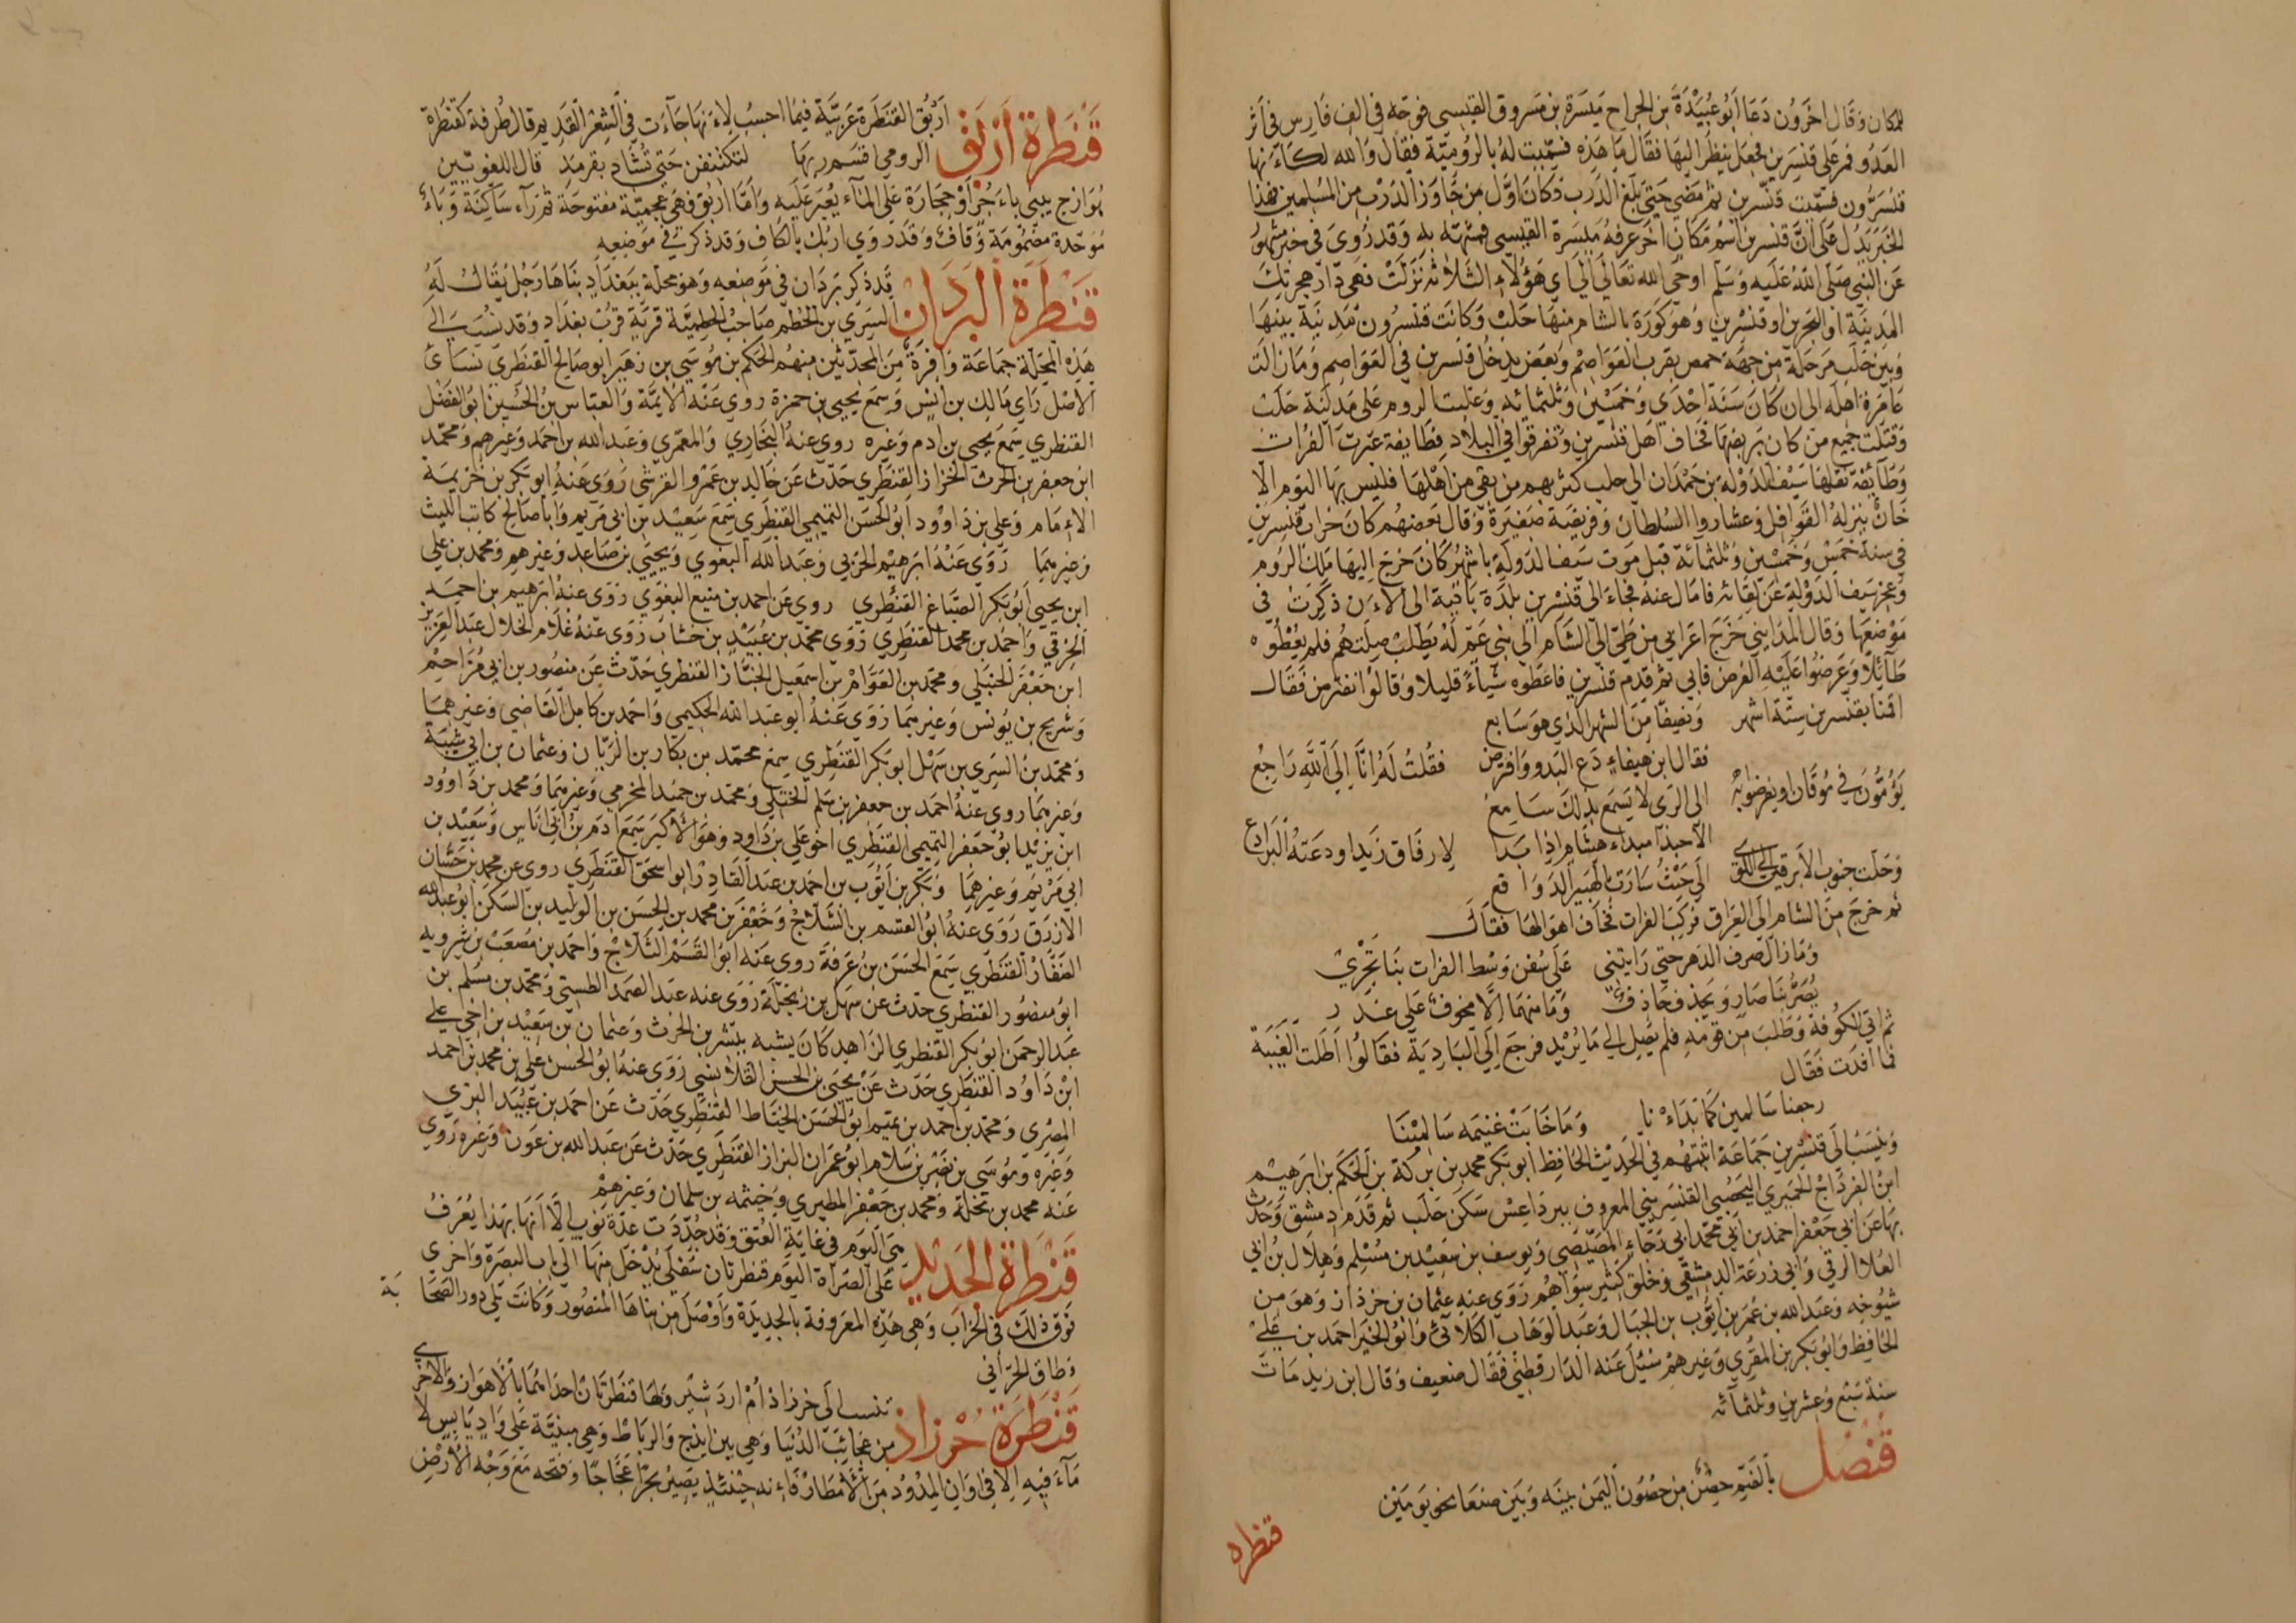 المكان وقال اخرون دعا ابو عبيدة بن الجراح ميسرة بن مسروق القيسي فوجه في الف فارس في اثر
العدو فمر على قنسرين فجعل ينظر اليها فقال ما هذه فسميت له بالرومية فقال والله لكاءنها
قنسرون فسميت قنسرين ثم مضى حتى بلغ الدرب فكان اول من جاوز الدرب من المسلمين فهذا
الخبر يدل على ان قنسرين اسم مكان اخر عرفه ميسرة القيسي فشبهته به وقد روى في خبر مشهور
عن النبي صلى الله عليه وسلم اوحى الله تعالى الي اي هؤلاء الثلاثة نزلت فهي دار هجرتك
المدينة او البحرين او قنسرين وهو كورة بالشام منها حلب وكانت قنسرون مدينة بينها
وبين حلب مرحلة من جهة حمص بقرب العواصم وبعض يدخل قنسرين في العواصم وما زالت
عامرة اهله الى ان كان سنة احدى وخمسين وثلثمائه وغلبت الروم على مدينة حلب
وقتلت جميع من كان بربضها فخاف اهل قنسرين وتفرقوا في البلاد فطايفة عبرت الفرات
وطائفة نقلها سيف الدولة بن حمدان الى حلب كثر بهم من بقي من اهلها فليس بها اليوم الا
خان ينزله القوافل وعشاروا السلطان وفريضة صغيرة وقال بعضهم كان خراب قنسرين
في سنة خمس وخمسين وثلثمائة قبل موت سيف الدولة باشهر كان خرج اليها ملك الروم
وعجز سيف الدولة عن لقائه فامال عنه فجاء الى قنسرين بلدة باقية الى الاءن ذكرت في
موضعها وقال المدايني خرج اعرابي من طي الى الشام الى بني عم له يطلب صلتهم فلم يعطوه
طائلا وعرضوا عليه الفرض فابى ثم قدم قنسرين فاعطوه شياء قليلا وقالوا نفترض فقال
اقمنا بقنسرين ستة اشهر ونصفا من الشهر الذي هو سابع
فقال ابن هيفاء دع البدو وافترض فقلت له انا الى الله راجع
يؤمون في موقان او يفرضوا به الى الري لا يسمع بذلك سامع
الا حبذا مبداء هشام اذا بدا لارفاق زيد او دعته البرادع
وحلت جنوب الابرقين الى اللوى الى حيث سارت بالهبير الدوافع
ثم خرج من الشام الى العراق فركب الفرات فخاف اهوالها فقال
وما زال صرف الدهر حتى رايتني على سفن وسط الفرات بنا تجري
يصر بنا صار ويجذف جاذف وما منهما الا مخوف على غدر
ثم اتى الكوفة وطلب من قومه فلم يصل الى ما يريد فرجع الى البادية فقالوا اطلت الغيبة
فما افدت فقال
رجعنا سالمين كما بداءنا وما خابت غنيمه سالمينا
وينسب الى قنسرين جماعة اثبتهم في الحديث الحافظ ابو بكر محمد بن بركة بن الحكم بن ابرهيم
ابن الفرداج الحميري اليحصبي القنسريني المعروف ببرداعس سكن حلب ثم قدم دمشق وحدث
بها عن ابي جعفر احمد بن ابي محمد ابي رجاء المصيصي ويوسف بن سعيد بن مسلم وهلال بن ابي
العلا الرقي وابي زرعة الدمشقي وخلق كثير سواهم روى عنه عثمان بن خرذاذ وهو من
شيوخه وعبد الله بن عمر بن ايوب بن الجبال وعبد الوهاب الكلابي وابو الخير احمد بن علي
الحافظ وابو بكر بن المقري وغيرهم سئل عنه الدارقطني فقال ضعيف وقال ابن زيد مات
سنة سبع وعشرين وثلثمائه
قنصل بالفتح حصن من حصون اليمن بينه وبين صنعا نحو يومين
قنطره
قنطرة اربق اربق القنطرة عربية فيما احسب لاءنها جاءت في الشعر القديم قال طرفة كقنطرة
الرومي اقسم ربها لتكتنفن حتى تشاد بقرمد قال اللغويين
هو ازج يبنى باءجر او حجارة على الماء يعبر عليه واما اربق فهي عجمية مفتوحة ثم راء ساكنة وباء
موحدة مضمومة وقاف وقد روي اربك بالكاف وقد ذكرت في موضعه
قنطرة البردان قد ذكر بردان في موضعه وهو محلة ببغداد بناها رجل يقال له
السري بن الحطم صاحب الحطمية قرية قرب بغداد وقد نسب الى
هذه المحلة جماعة وافرة من المحدثين منهم الحكم بن موسى بن زهير ابو صالح القنطري نسائ
الاصل راي مالك بن انس وسمع يحيى بن حمزة روى عنه الايمة والعباس بن الحسين ابو الفضل
القنطري سمع يحيى بن ادم وغيره روى عنه البخاري والمعمري وعبد الله بن احمد وغيرهم ومحمد
ابن جعفر بن الحرث الخزاز القنطري حدث عن خالد بن عمرو القرشي روى عنه ابو بكر بن خزيمة
الاءمام وعلي بن داوود ابو الحسن التميمي القنطري سمع سعيد بن ابي مريم وابا صالح كاتب الليث
وغيرهما روى عنه ابرهيم الحربي وعبد الله البغوي ويحيى بن صاعد وغيرهم ومحمد بن علي
ابن يحيى ابو بكر الصباغ القنطري روى عن احمد بن منيع البغوي روى عنه ابرهيم بن احمد
الخرقي واحمد بن محمد القنطري روى محمد بن عبيد بن حساب روى عنه غلام الخلال عبد العزيز
ابن جعفر الحنبلي ومحمد بن العوام بن اسمعيل الخباز القنطري حدث عن منصور بن ابي مزاحم
وشريح بن يونس وغيرهما روى عنه ابو عبد الله الحكيمي واحمد بن كامل القاضي وغيرهما
ومحمد بن السري بن سهل ابو بكر القنطري سمع محمد بن بكار بن الريان وعثمان بن ابي شيبة
وغيرهما روى عنه احمد بن جعفر بن سلم الختلي ومحمد بن حميد المخرمي وغيرهما ومحمد بن داوود
ابن يزيد ابو جعفر التميمي القنطري اخو علي بن داود وهو الاكبر سمع ادم بن ابي اياس وسعيد بن
ابي مريم وغيرهما وبكر بن ايوب بن احمد بن عبد القادر ابو اسحق القنطري روى عن محمد بن حسان
الازرق روى عنه ابو القسم بن الثلاج وجعفر بن محمد بن الحسن بن الوليد بن السكن ابو عبد الله
الصفار القنطري سمع الحسن بن عرفة روى عنه ابو القسم الثلاج واحمد بن مصعب بن شرويه
ابو منصور القنطري حدث عن سهل بن زنجلة روى عنه عبد الصمد الطستي ومحمد بن مسلم بن
عبد الرحمن ابو بكر القنطري الزاهد كان يشبه ببشر بن الحرث وعثمان بن سعيد بن اخي علي
ابن داود القنطري حدث عن يحيى بن الحسن القلانسي روى عنه ابو الحسن علي بن محمد بن احمد
المصري ومحمد بن احمد بن تميم ابو الحسن الخياط القنطري حدث عن احمد بن عبيد النرسي
وغيره وموسى بن نصر بن سلام ابو عمران البزاز القنطري حدث عن عبد الله بن عون وغيره روى
عنه محمد بن مخلد ومحمد بن جعفر المطيري وخيثمه بن سلمان وغيرهم
قنطرة الحديد هي اليوم في غاية العتق وقد جددت عدة نوب الا انها بهذا يعرف
على الصراة اليوم قنطرتان سفلى يدخل منها الى باب البصرة واخرى
فوق ذلك في الخراب وهي هذه المعروفة بالجديدة واوصل من بناها المنصور وكانت تلي دور الصحابة
وطاق الحراني
قنطرة خرزاذ تنسب الى خرزاذ ام اردشير ولها قنطرتان احداهما بالاهواز والاخرى
من عجائب الدنيا وهي بين ايذج والرباط وهي مبنية على واد يابس لا
ماء فيه الا في اوان المدود من الامطار فاءنه حينئذ يصير بحرا عجاجا وفتحه مع وجه الارض